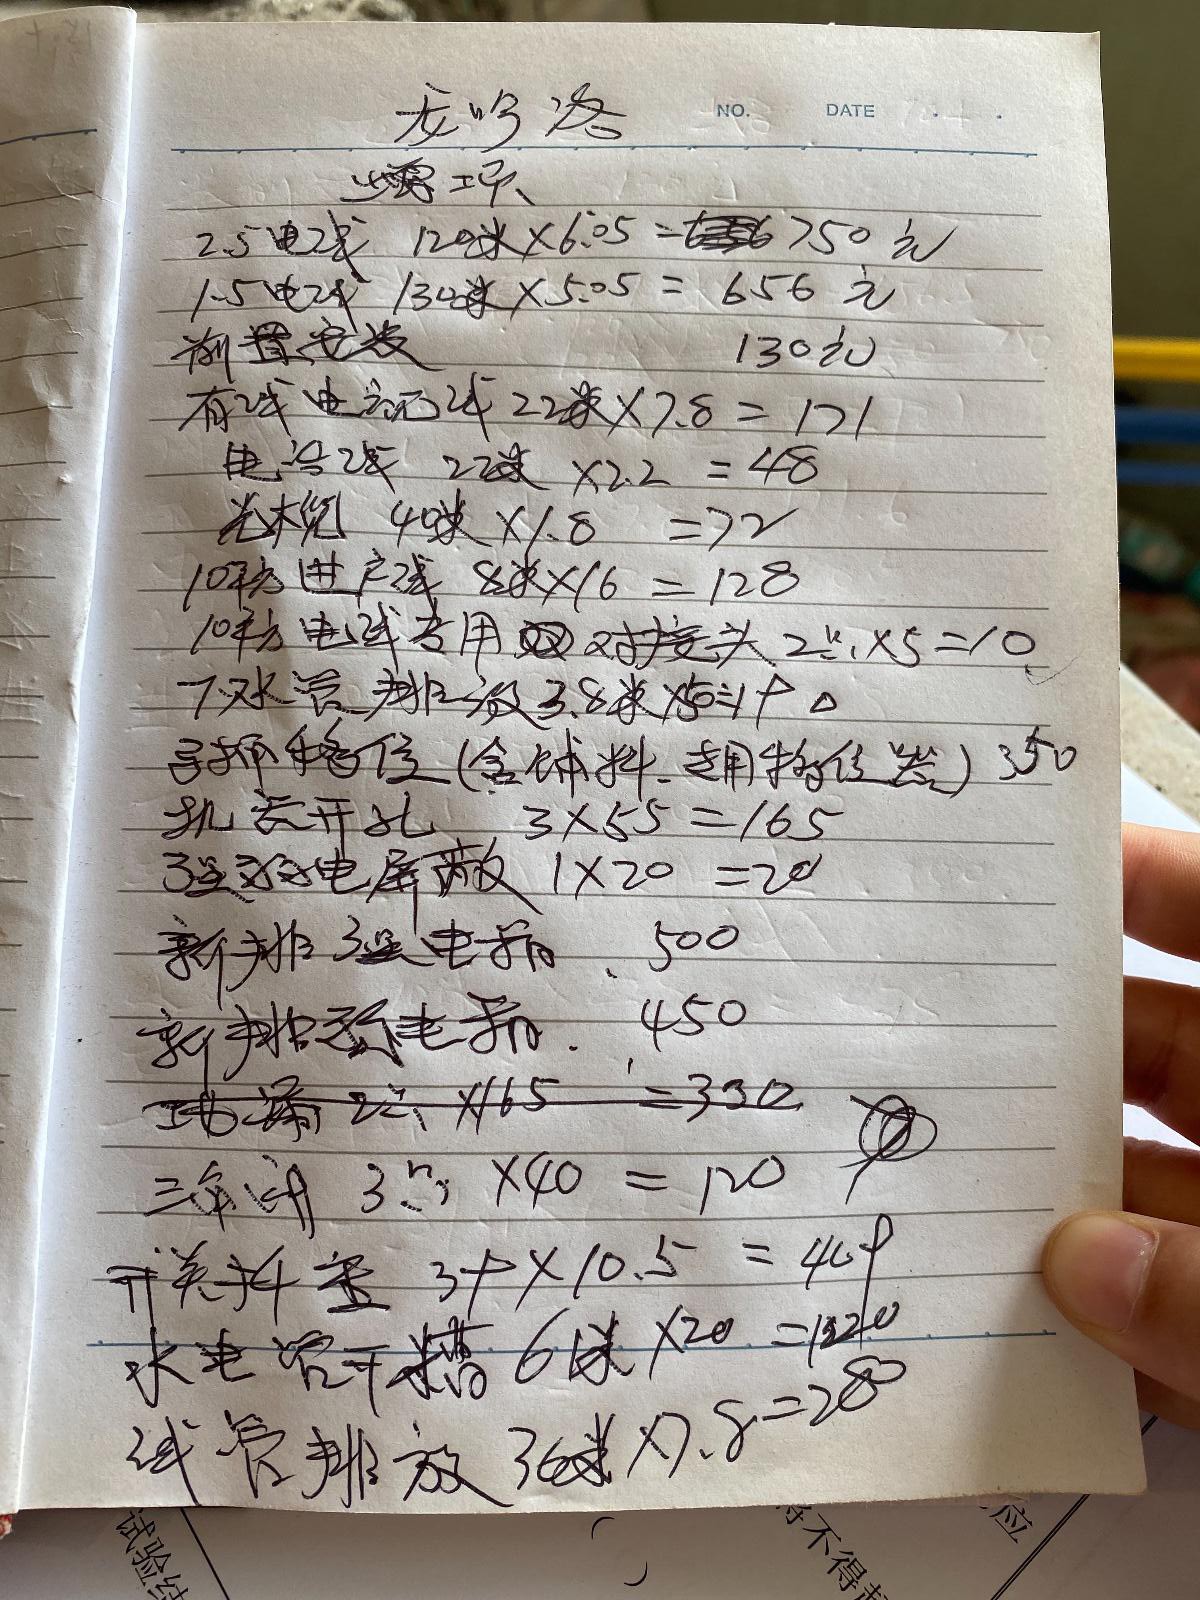 NO. DATE
增项
2.5电线 120米×6.05= 750元
1.5电线 130米×5.05= 656元
前置安装 130元
有线电视线 22米×7.8=171
电话线 22米×2.2=48
光纤 40米×1.8=72
10平方进户线 8米×16=128
10平方电线专用 对接头 2只×5=10
下水管排放3.8米×50=190
移位(含铺料.专用移位器) 350
开孔 3×55=165
强弱电屏蔽 1×20=20
新排强电箱. 500
新排弱电箱. 450
地漏 2只×165=330
三角阀 3只×40=120
开关插座 39×10.5=409
水电管开槽 61米×20=1220
线管排放 36米×7.8=280
试验结
得不得超
应